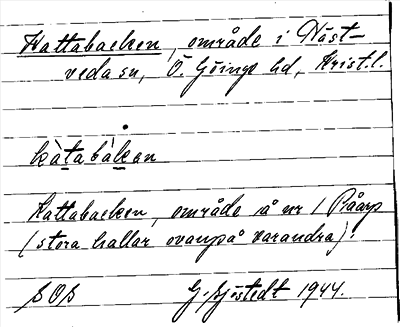 Kattabacken, område i Näst-
veda sn, Ö. Göinge hd, Krist. l.
kàtabákan
Kattabacken, område å nr 1 Råarp
(stora hallar ovanpå varandra).
SOS G. Sjöstedt 1944.